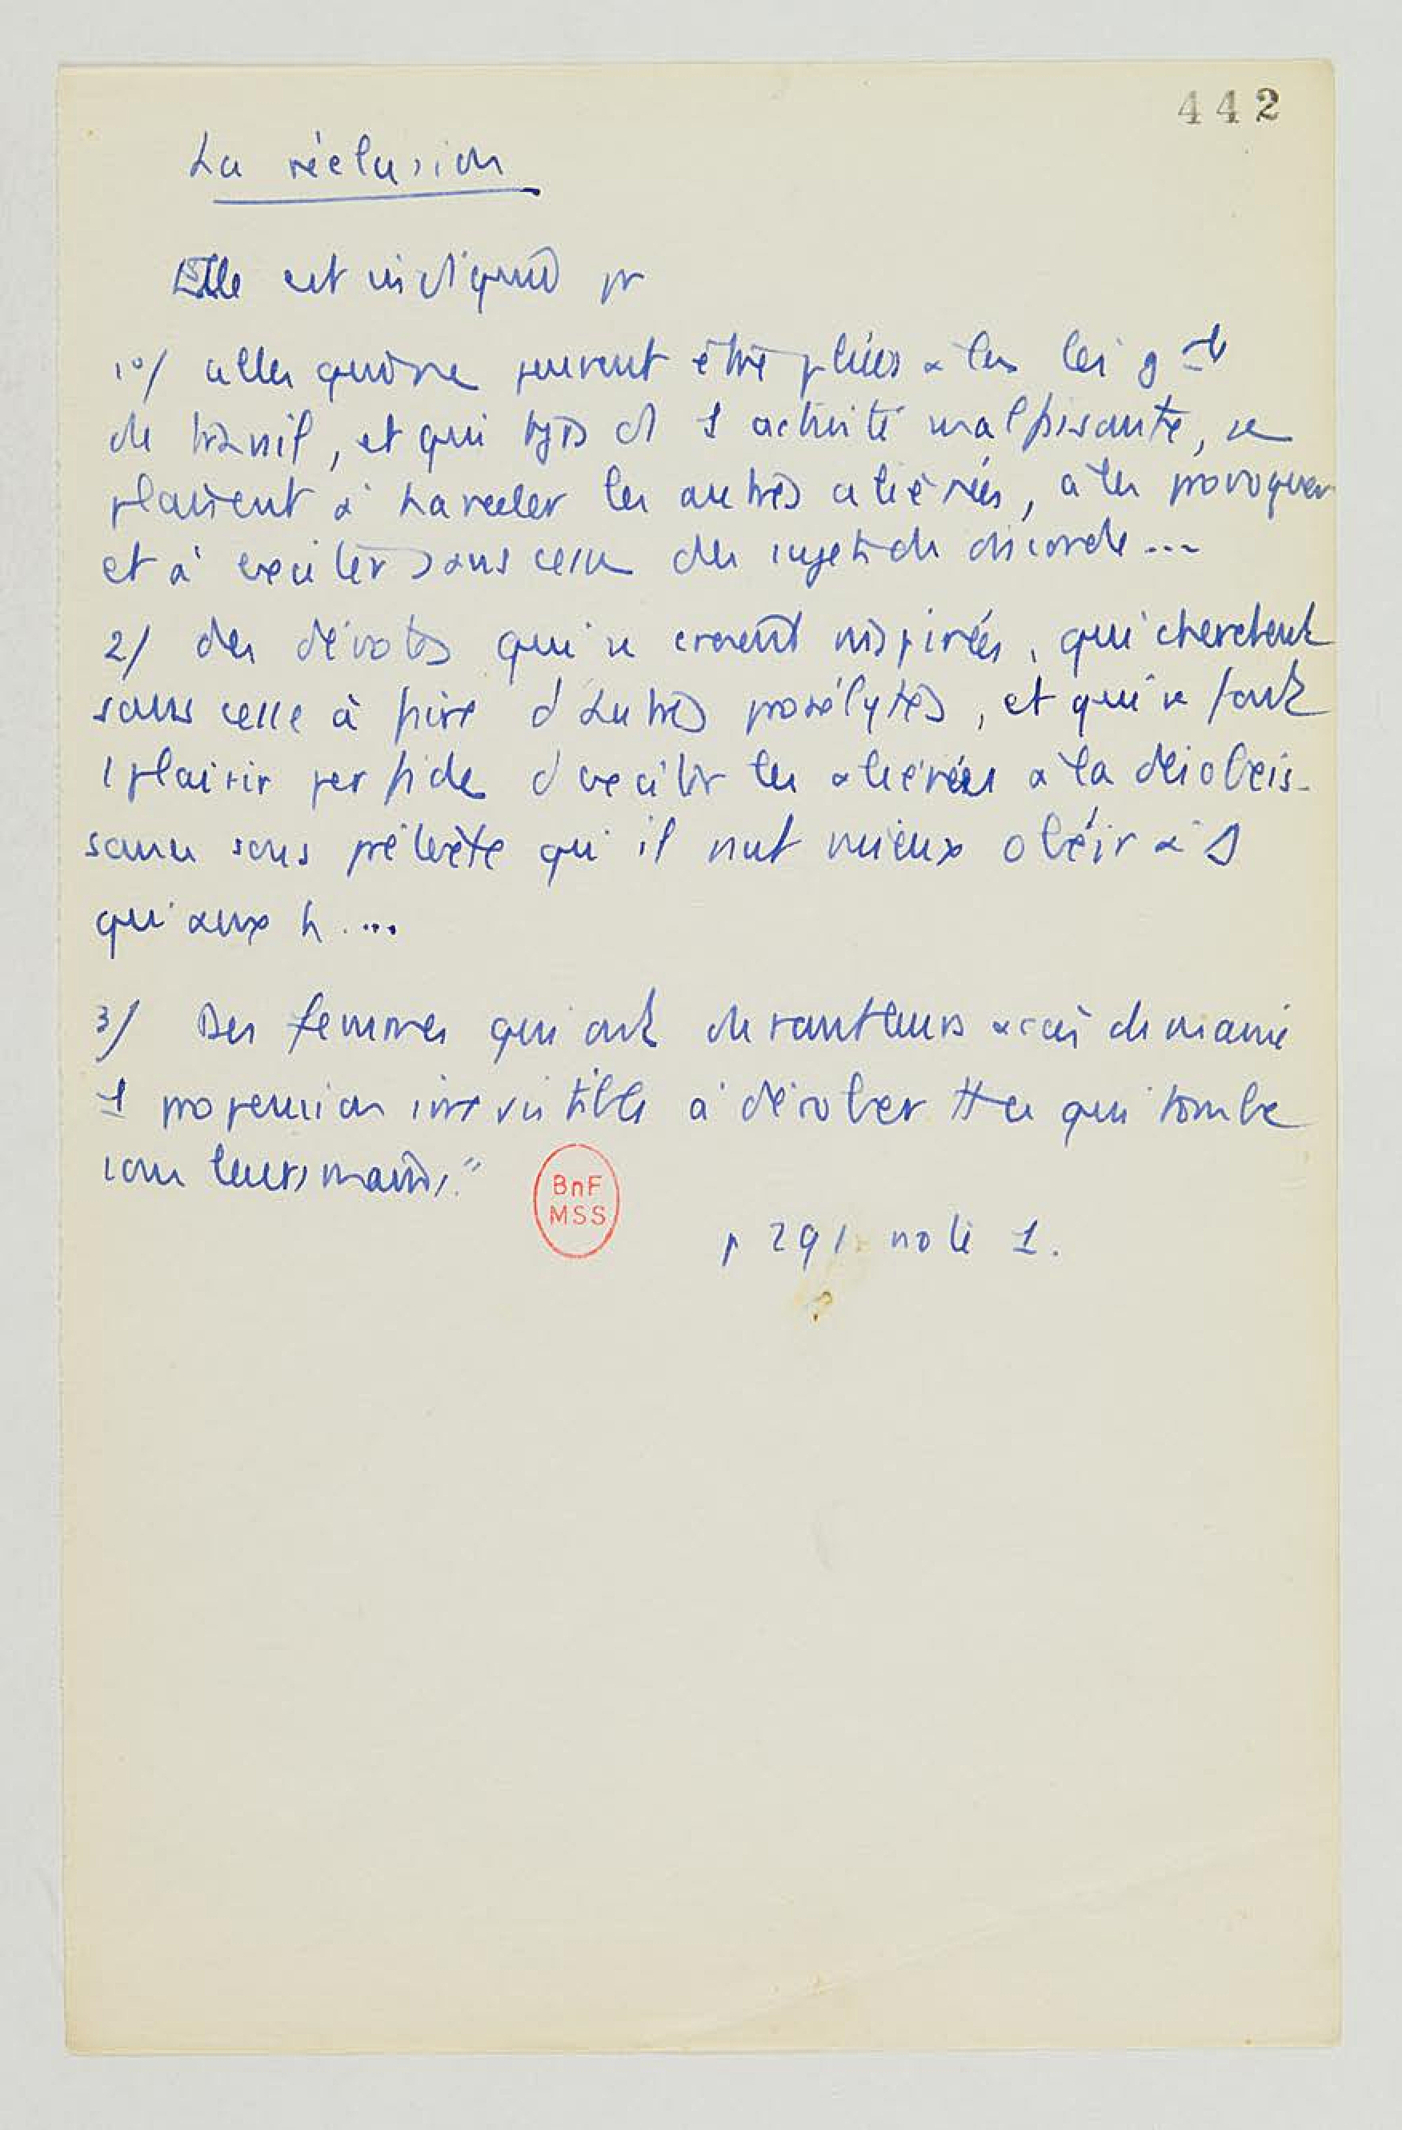 442
La réclusion
Elle est indiquée pr
1°/ celles qui ne peuvent être pliées à la loi gle
de travail, et qui tjrs ds 1 activité malfaisante, se
plaisent à harceler les autres aliénées, à les provoquer
et à exciter sans cesse des sujets de discorde ...
2/ des dévotes qui se croient inspirées, qui cherchent
sans cesse à faire d'autres prosélytes, et qui se font
1 plaisir perfide d'exciter les aliénées à la désobéis-
sance sous prétexte qu'il vaut mieux obéir à D
qu'aux h. ...
3/ Des femmes qui ont durant leurs accès de manie
1 propension irrésistible à dérober tt ce qui tombe
sous leurs mains."
BnF
MSS
p 291 note 1.